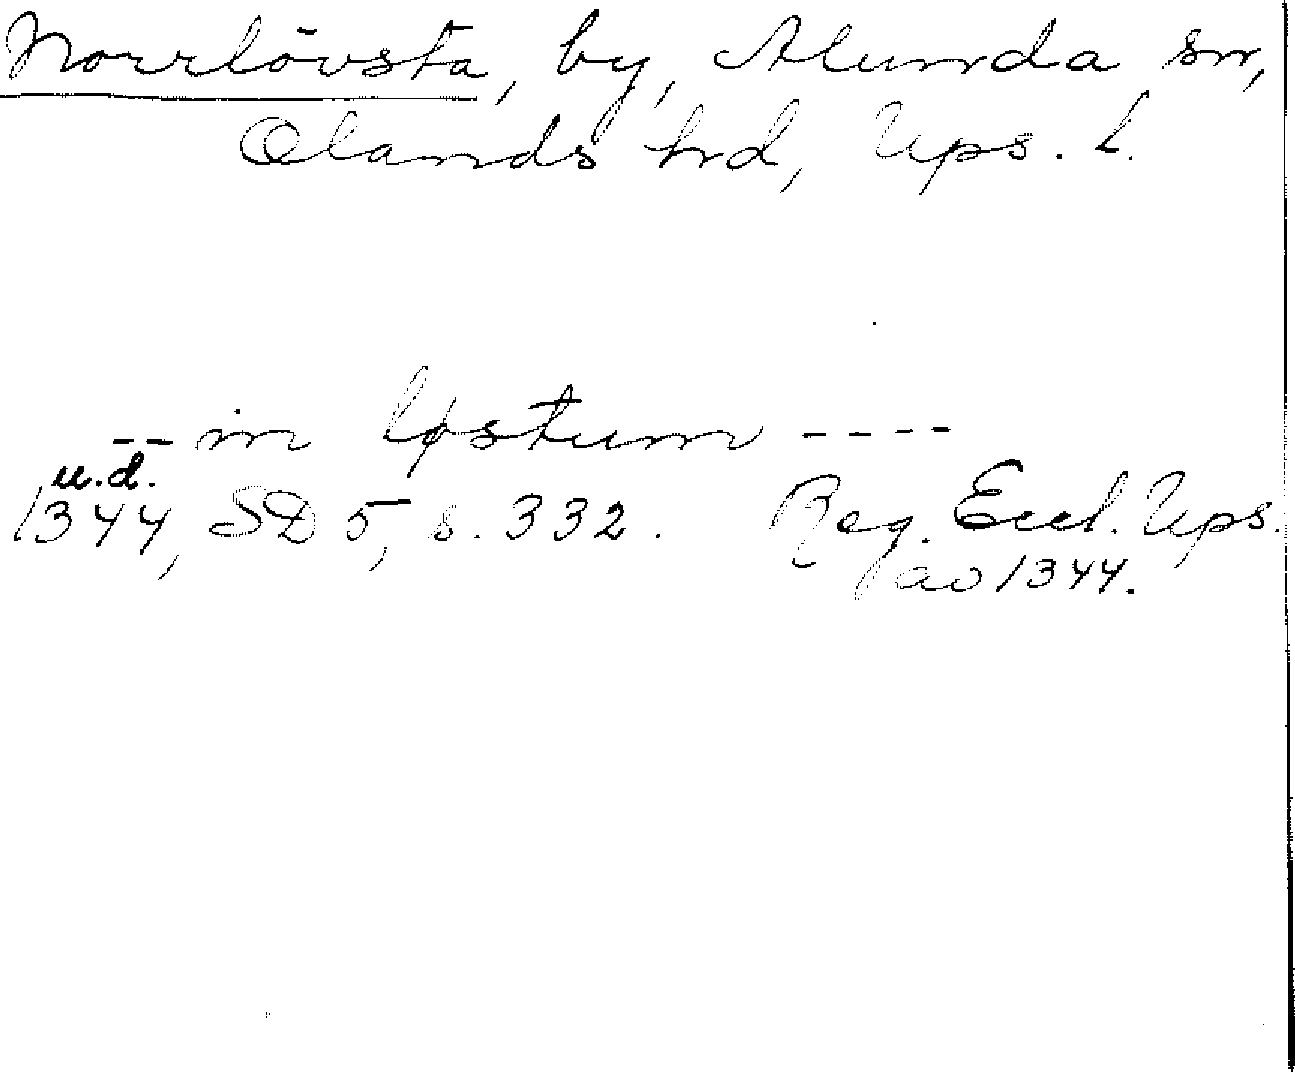 Norrlövsta, by, Alunda sn,
Olands hrd, Ups. l.
-- in løstum ----
u.d.
1344, SD 5, s. 332. Reg. Eccl. Ups.
av 1344.